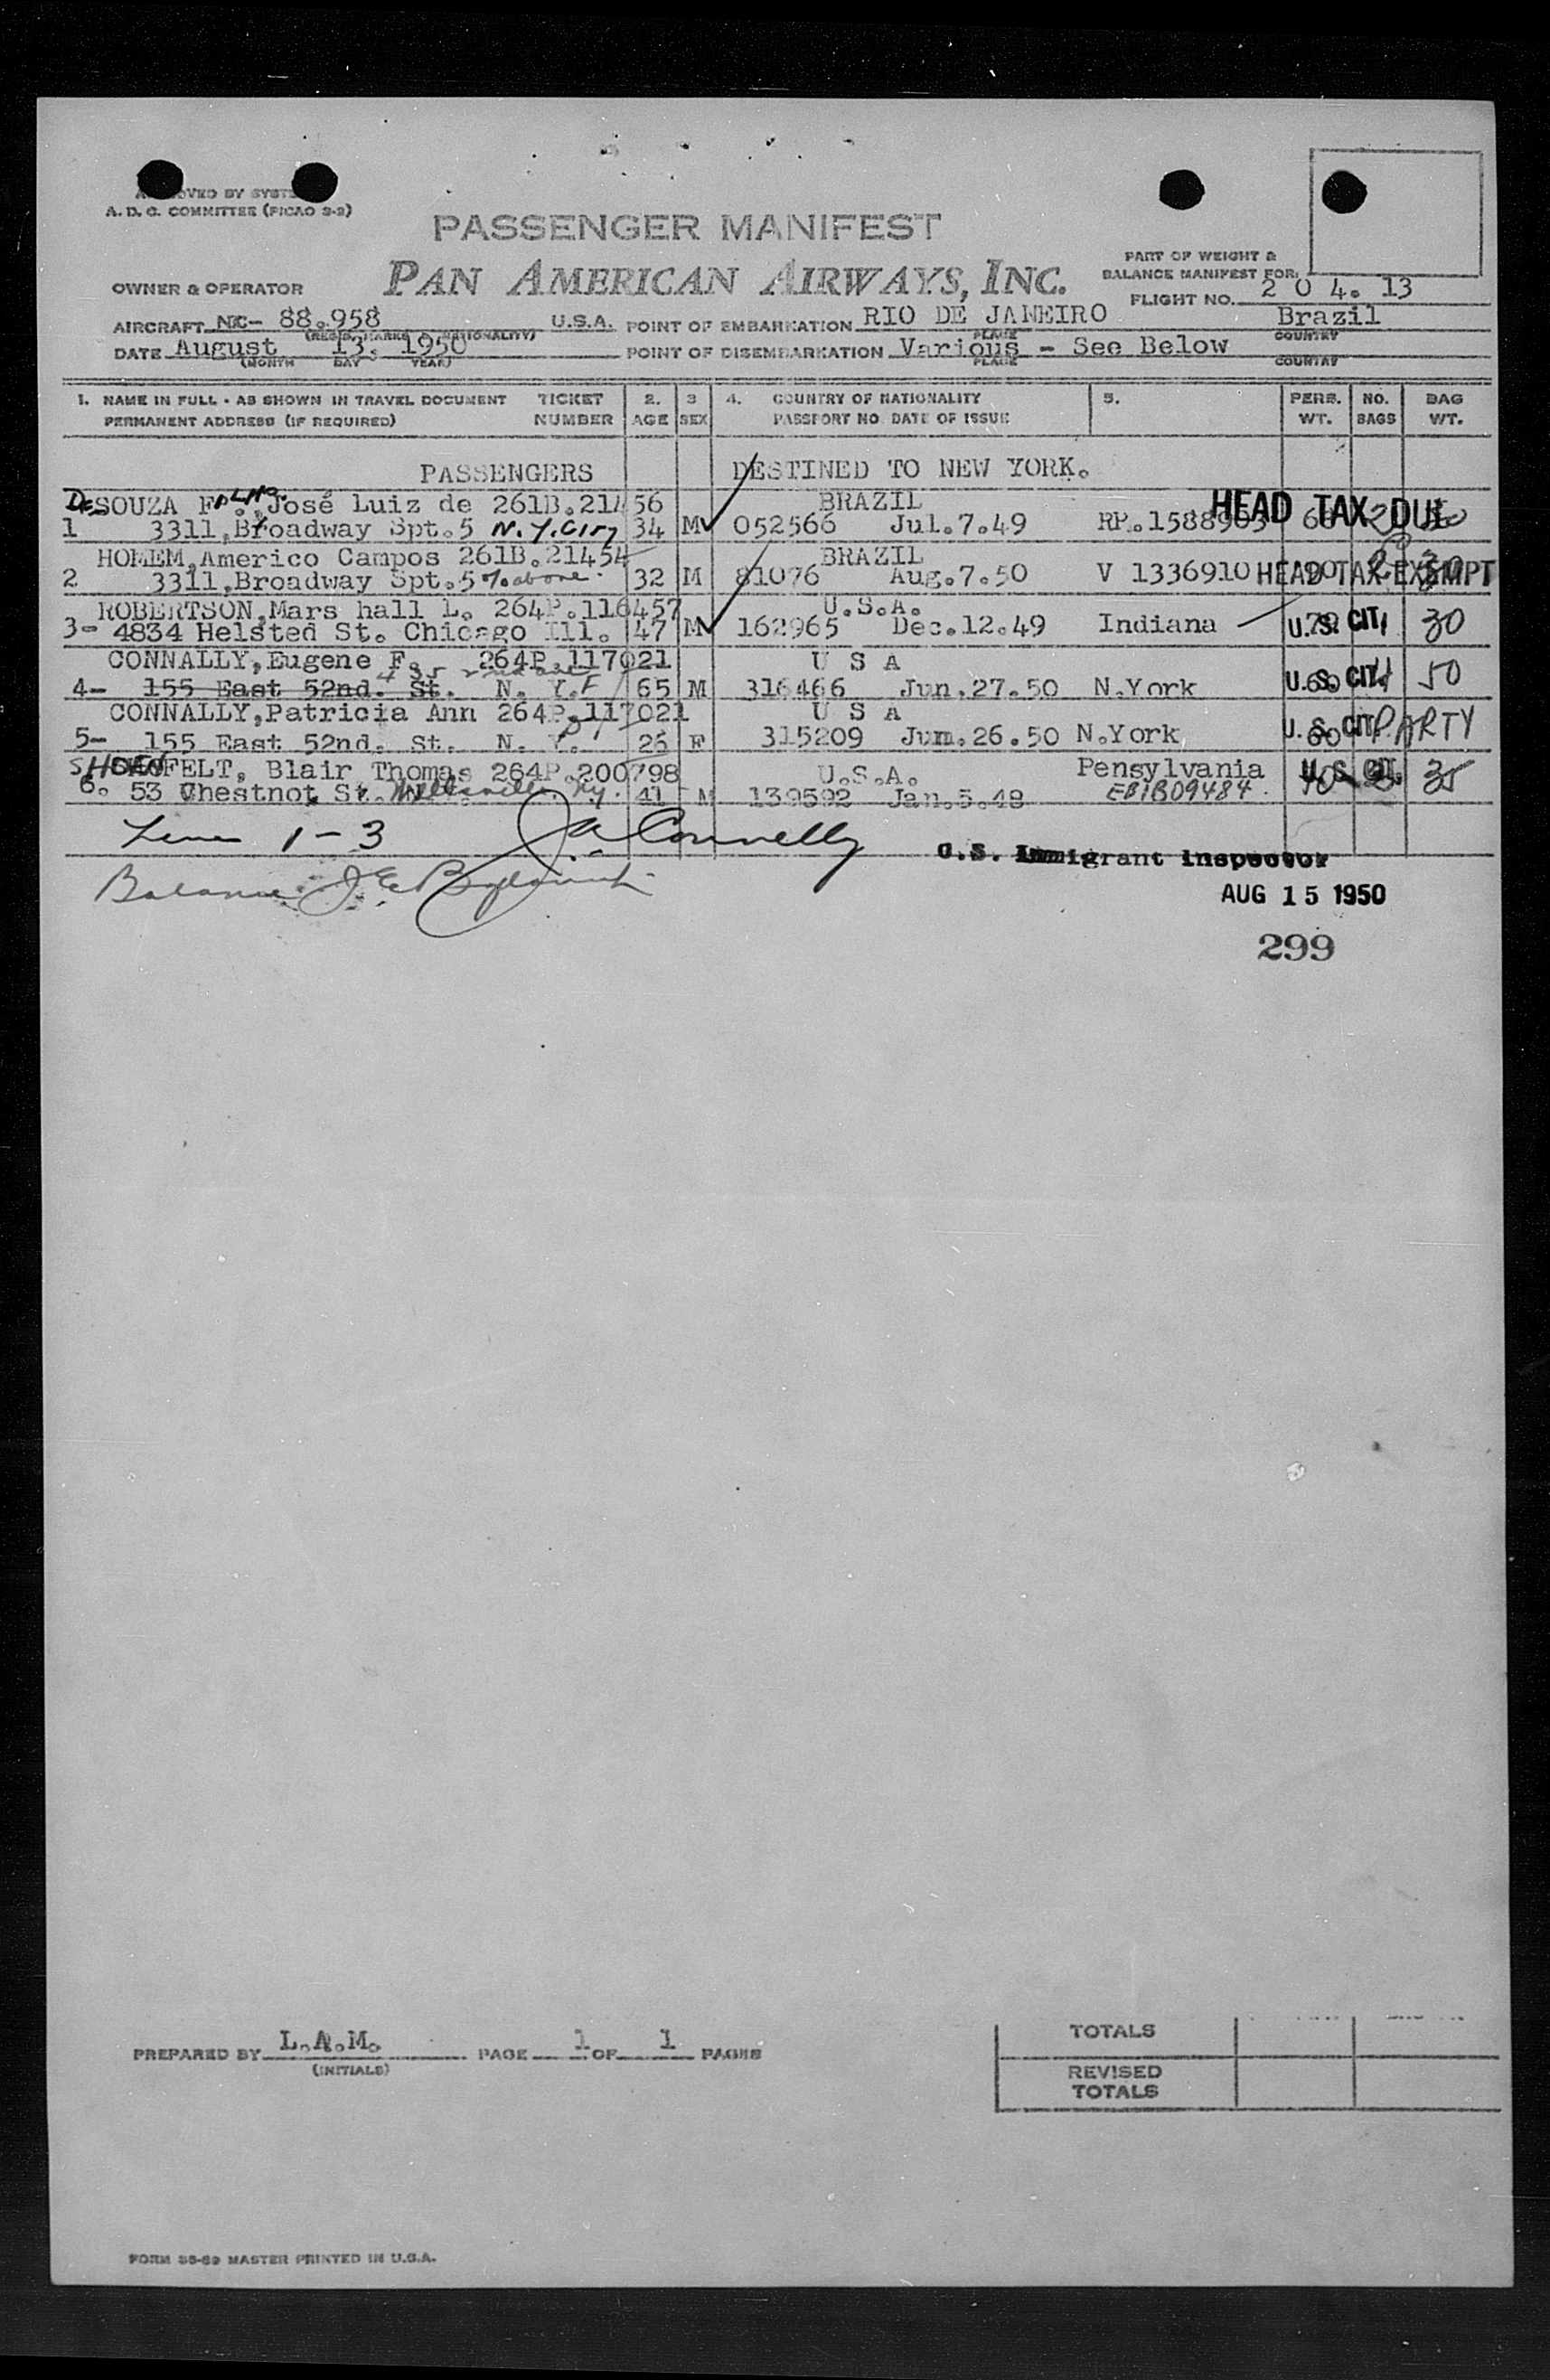 A. D. C. COMMITTEE (PICAO 2-2)
PASSENGER MANIFEST
PART OF WEIGHT &
BALANCE MANIFEST FOR:
OWNER & OPERATOR PAN AMERICAN AIRWAYS, INC.
FLIGHT NO. 2 0 4. 13
AIRCRAFT NC- 88.958 U.S.A. POINT OF EMBARKATION RIO DE JANEIRO Brazil
PLACE COUNTRY
DATE August 13, 1950 POINT OF DISEMBARKATION Various - See Below
(MONTH DAY YEAR) PLACE COUNTRY
1. NAME IN FULL - AS SHOWN IN TRAVEL DOCUMENT TICKET 2. 3 4. COUNTRY OF NATIONALITY 5. PERS. NO. BAG
PERMANENT ADDRESS (IF REQUIRED) NUMBER AGE SEX PASSPORT NO DATE OF ISSUE WT. BAGS WT.
PASSENGERS DESTINED TO NEW YORK.
DE SOUZA José Luiz de 261B.21456 BRAZIL HEAD TAX DUE
1 3311,Broadway Spt.5 N.Y.City 34 M 052566 Jul.7.49
HOMEM,Americo Campos 261B.21454 BRAZIL
2 3311,Broadway Spt.5 % above 32 M 81076 Aug.7.50 V 1336910 HEAD TAX EXEMPT
ROBERTSON,Mars hall L. 264P.116457 U.S.A.
3- 4834 Helsted St. Chicago Ill. 47 M 162965 Dec.12.49 Indiana U. S. CIT. 30
CONNALLY,Eugene F. 264P.117021 U S A
4- 155 East 52nd. St. N. Y. 65 M 316466 Jun.27.50 N.York U. S. CIT. 50
CONNALLY,Patricia Ann 264P.117021 U S A
5- 155 East 52nd. St. N. Y. 26 F 315209 Jum.26.50 N.York U. S. CIT. PARTY
FELT, Blair Thomas 264P.200798 U.S.A. Pensylvania U. S. CIT. 35
6. 53 Chestnot St. Wellsville N.Y. 41 M 139592 Jan.5.48 EBIB09484
Lines 1-3 J. A. Connelly
U.S. Immigrant Inspector
Balance J. E.
AUG 15 1950
299
PREPARED BY L.A.M. PAGE 1 OF 1 PAGES
(INITIALS)
TOTALS
REVISED
TOTALS
FORM 36-69 MASTER PRINTED IN U.S.A.